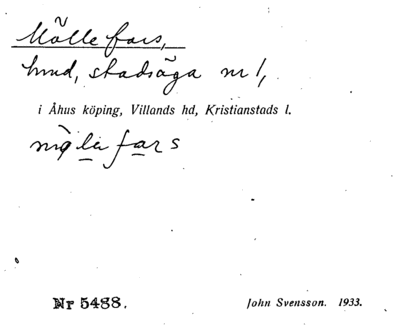 Mölle fars,
hmd, stadsäga nr 1,
i Åhus köping, Villands hd, Kristianstads l.
mǫ̀lɛ fars
Nr 5488.
John Svensson. 1933.